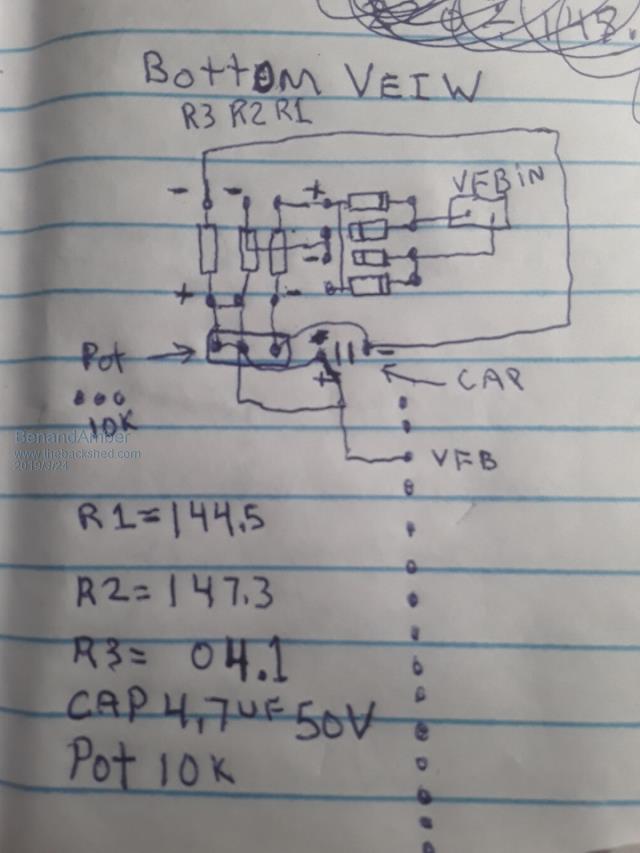 148.
BOttOM VEIW
R3 R2 R1
VFB iN
- - +
-
+ -
Pot
-
+
CAP
10K
BenandAmber
www.thebackshed.com
2019/3/24
VFB
R1=144.5
R2=147.3
R3= 04.1
CAP 4,7UF 50V
Pot 10K